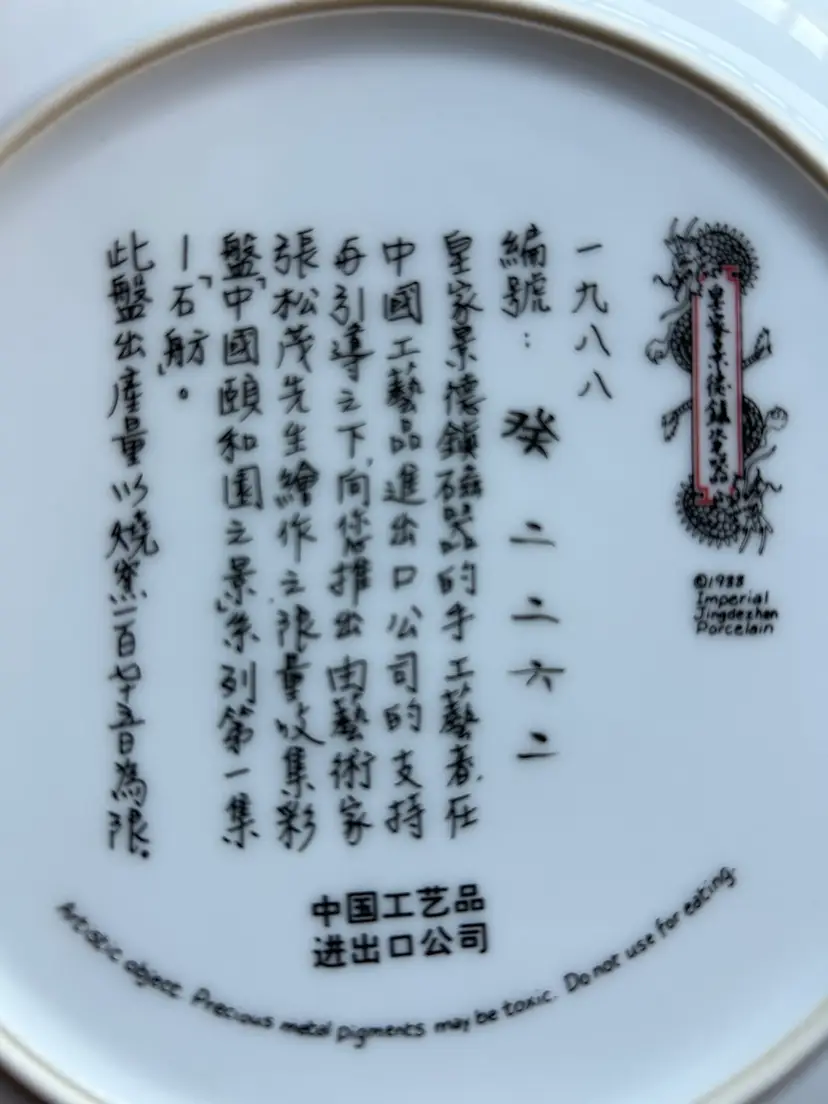 皇家景德鎮瓷器
©1988
Imperial
Jingdezhen
Porcelain
一九八八
編號：癸二二六二
皇家景德鎮磁器的手工藝者，在
中國工藝品進出口公司的支持
与引導之下，向您推出由藝術家
張松茂先生繪作之限量收集彩
盤「中國頤和園之景」系列第一集
—「石舫」。
此盤出產量以燒窯一百七十五日為限。
中国工艺品
进出口公司
Artistic object. Precious metal pigments may be toxic. Do not use for eating.